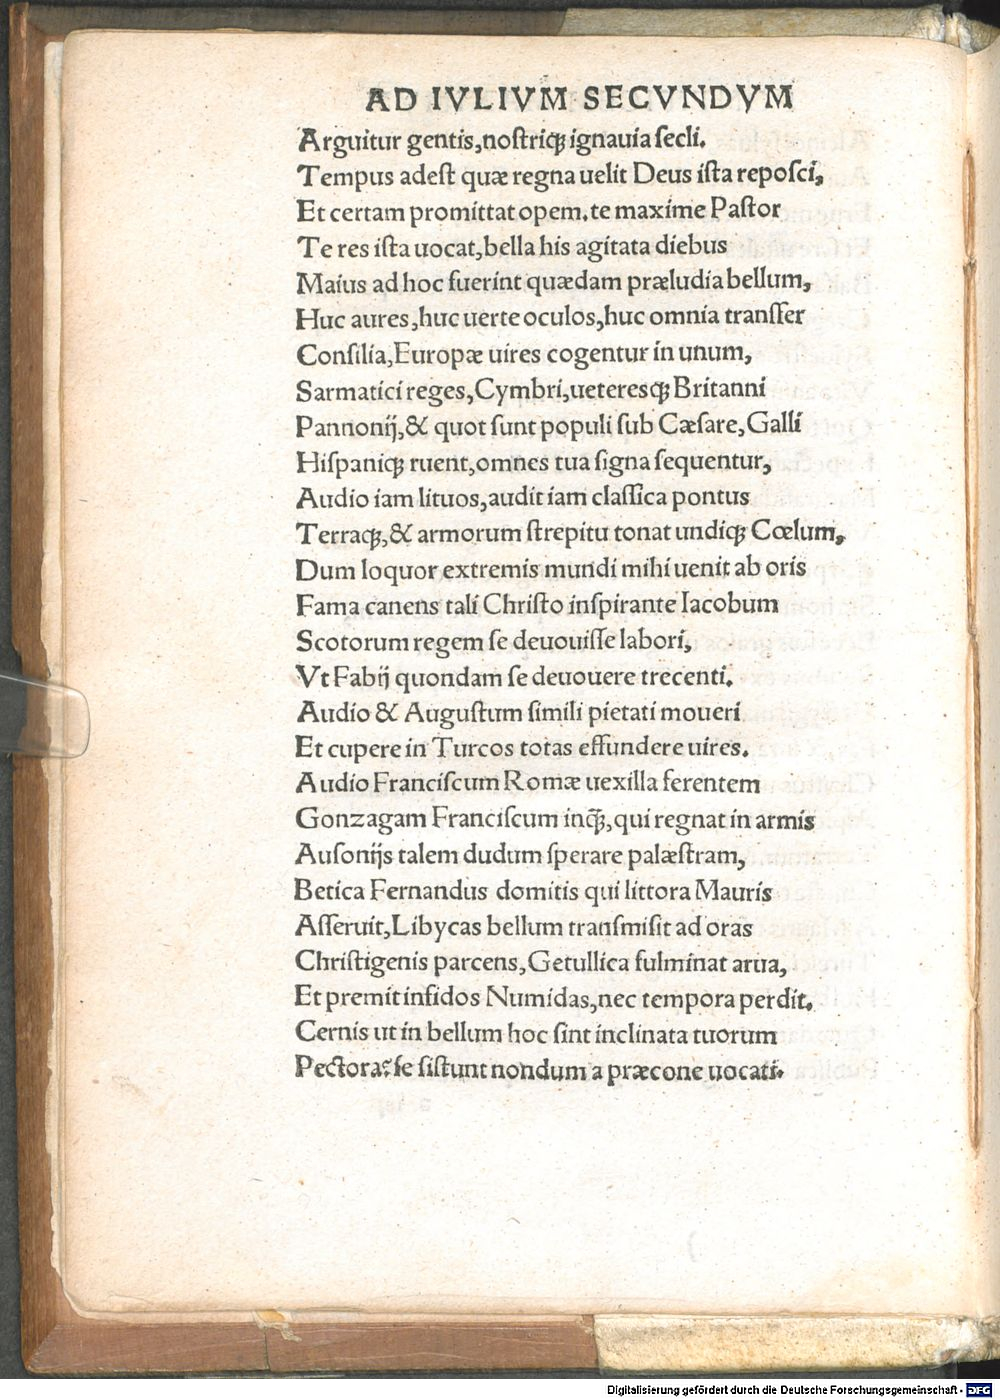 AD IVLIVM SECVNDVM
Arguitur gentis,nostriq꜒ ignauia ſecli.
Tempus adeſt quæ regna uelit Deus iſta repoſci,
Et certam promittat opem.te maxime Paſtor
Te res iſta uocat,bella his agitata diebus
Maius ad hoc fuerint quædam præludia bellum,
Huc aures,huc uerte oculos,huc omnia tranſfer
Conſilia,Europæ uires cogentur in unum,
Sarmatici reges,Cymbri,ueteresq; Britanni
Pannonij,& quot ſunt populi ſub Cæſare,Galli
Hiſpaniq; ruent,omnes tua ſigna ſequentur,
Audio iam lituos,audit iam claſſica pontus
Terraq;,& armorum ſtrepitu tonat undiq; Cœlum,
Dum loquor extremis mundi mihi uenit ab oris
Fama canens tali Chriſto inſpirante Iacobum
Scotorum regem ſe deuouiſſe labori,
Vt Fabij quondam ſe deuouere trecenti.
Audio & Auguſtum ſimili pietati moueri
Et cupere in Turcos totas effundere uires.
Audio Franciſcum Romæ uexilla ferentem
Gonzagam Franciſcum inq̃;,qui regnat in armis
Auſonijs talem dudum ſperare palæſtram,
Betica Fernandus domitis qui littora Mauris
Aſſeruit,Libycas bellum tranſmiſit ad oras
Chriſtigenis parcens,Getullica fulminat arua,
Et premit infidos Numidas,nec tempora perdit.
Cernis ut in bellum hoc ſint inclinata tuorum
Pectora? ſe ſiſtunt nondum a præcone uocati.
Digitalisierung gefördert durch die Deutsche Forschungsgemeinschaft - DFG